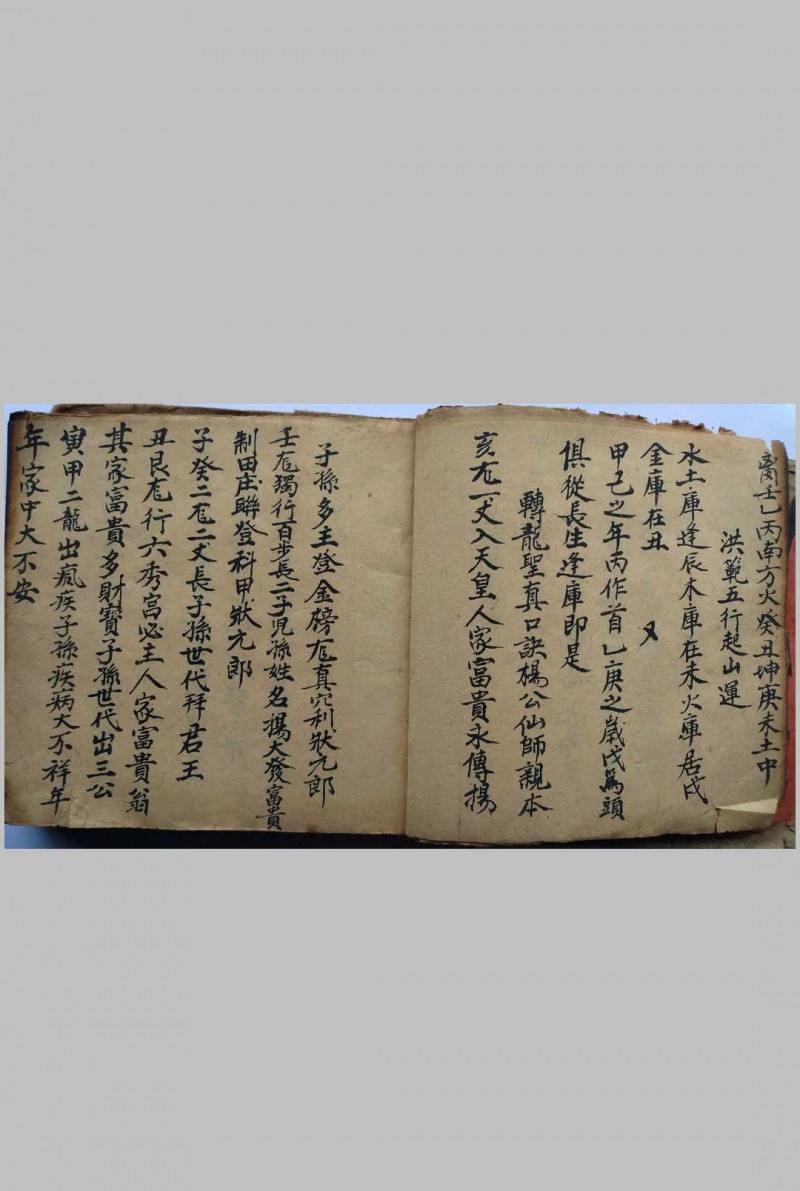 壬乙丙南方火癸丑坤庚未土中
洪範五行起山運
水土庫逢辰木庫在未火庫居戌
金庫在丑　又
甲己之年丙作首乙庚之歲戊為頭
俱從長生逢庫即是
轉龍聖真口訣楊公仙師親本
亥龙一丈入天皇人家富貴永傳揚
子孫多主登金榜龙真穴利狀元郎
壬龙獨行百步長二子児孫姓名揚大發富貴
制田庄聯登科甲狀元郎
子癸二龙二丈長子孫世代拜君王
丑艮龙行六秀宮必主人家富貴翁
其家富貴多財寶子孫世代出三公
寅甲二龍出瘋疾子孫疾病大不祥年
年家中大不安